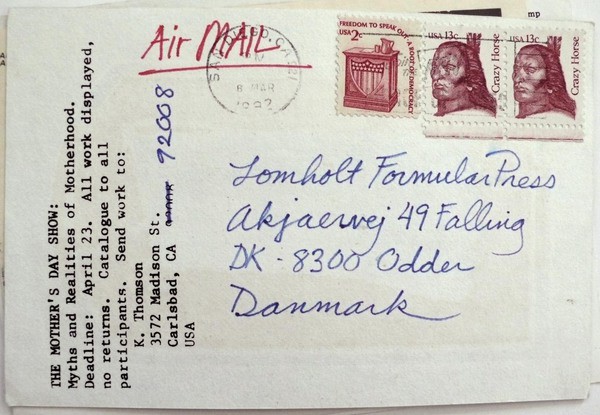 Air MAIL
SAN DIEGO, CA
8 MAR
FREEDOM TO SPEAK OUT A ROOT OF DEMOCRACY
USA 2c
USA 13c
Crazy Horse
USA 13c
Crazy Horse
Lomholt FormularPress
Akjaervej 49 Falling
DK - 8300 Odder
Danmark
THE MOTHER'S DAY SHOW:
Myths and Realities of Motherhood.
Deadline: April 23. All work displayed,
no returns. Catalogue to all
participants. Send work to:
K. Thomson
3572 Madison St.
Carlsbad, CA 92008
USA
mp